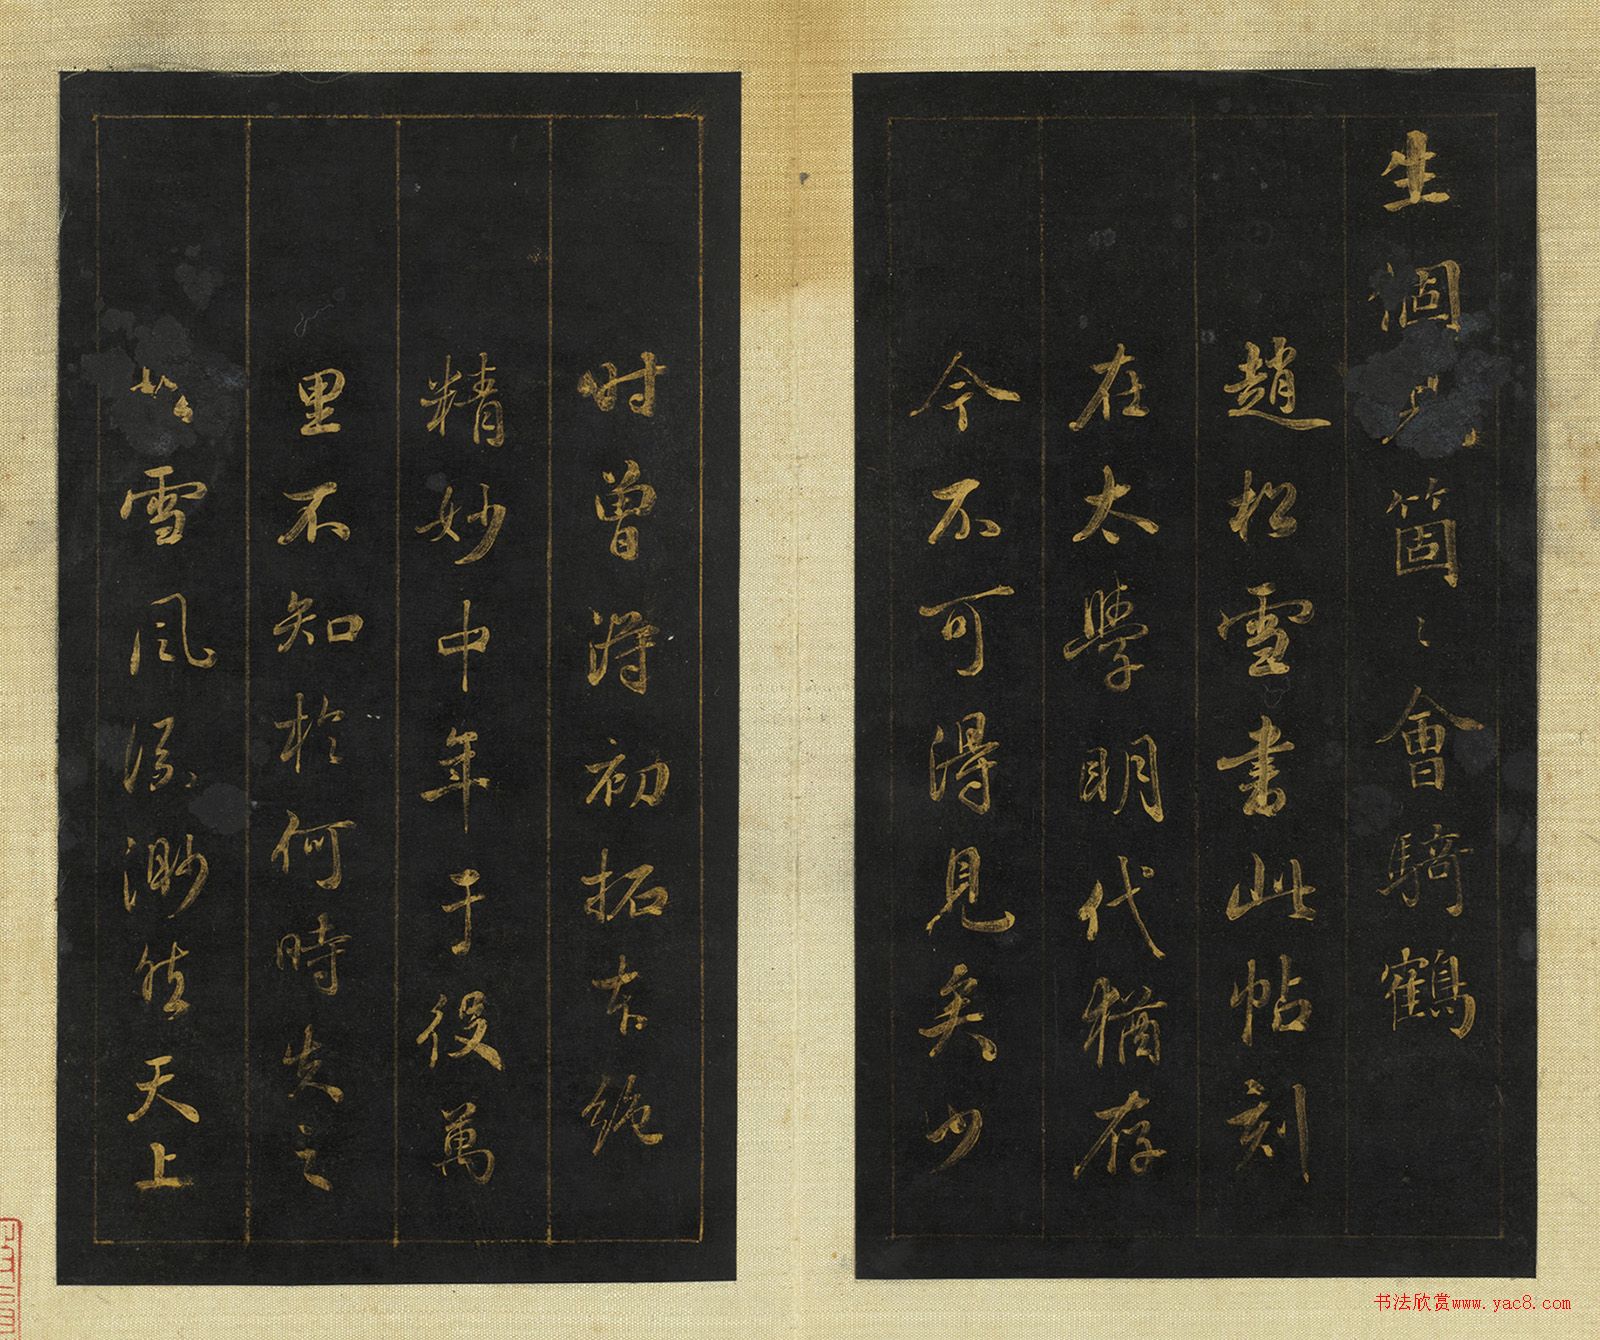 生箇〻會騎鶴
趙松雪書此帖刻
在太學明代猶存
今不可得見矣少
时曾得初拓本絶
精妙中年于役萬
里不知於何時失之
雪風流渺然天上
书法欣赏www.yac8.com